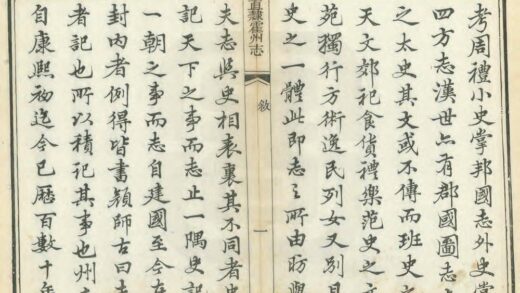 考周禮小史掌邦國志外史掌
四方志漢世亦有郡國圖志
之太史其文或不傳而班史之
天文郊祀食貨禮樂范史之
苑獨行方術逸民列女又別
史之一體此即志之所由昉與
直隸霍州志
敘
一
夫志與史相表裏其不同者史
記天下之事而志止一隅史記
一朝之事而志自建國至今在
封內者例得皆書顏師古曰志
者記也所以積記其事也州
自康熙初迄今已歷百數十年